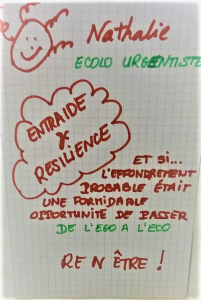 Nathalie
ECOLO URGENTISTE
ENTRAIDE
&
RESILIENCE
ET SI...
L'EFFONDREMENT
PROBABLE ÉTAIT
UNE FORMIDABLE
OPPORTUNITE DE PASSER
DE L'EGO A L'ECO
RE N ÊTRE !